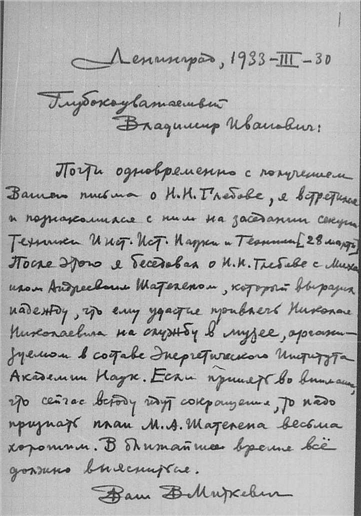 1
Ленинград, 1933-III-30
Глубокоуважаемый
Владимир Иванович:
Почти одновременно с получением
Вашего письма о Н.Н. Глебове, я встретился
и познакомился с ним на заседании секции
Техники Инст. Ист. Науки и Техники [28 марта]
После этого я беседовал о Н.Н. Глебове с Миха
илом Андреевичем Шателеном, который выразил
надежду, что ему удастся привлечь Николая
Николаевича на службу в музее, органи-
зуемом в составе Энергетического Института
Академии Наук. Если принять во внимание,
что сейчас всюду идут сокращения, то надо
признать план М.А. Шателена весьма
хорошим. В ближайшее время всё
должно выясниться.
Ваш В Миткевич